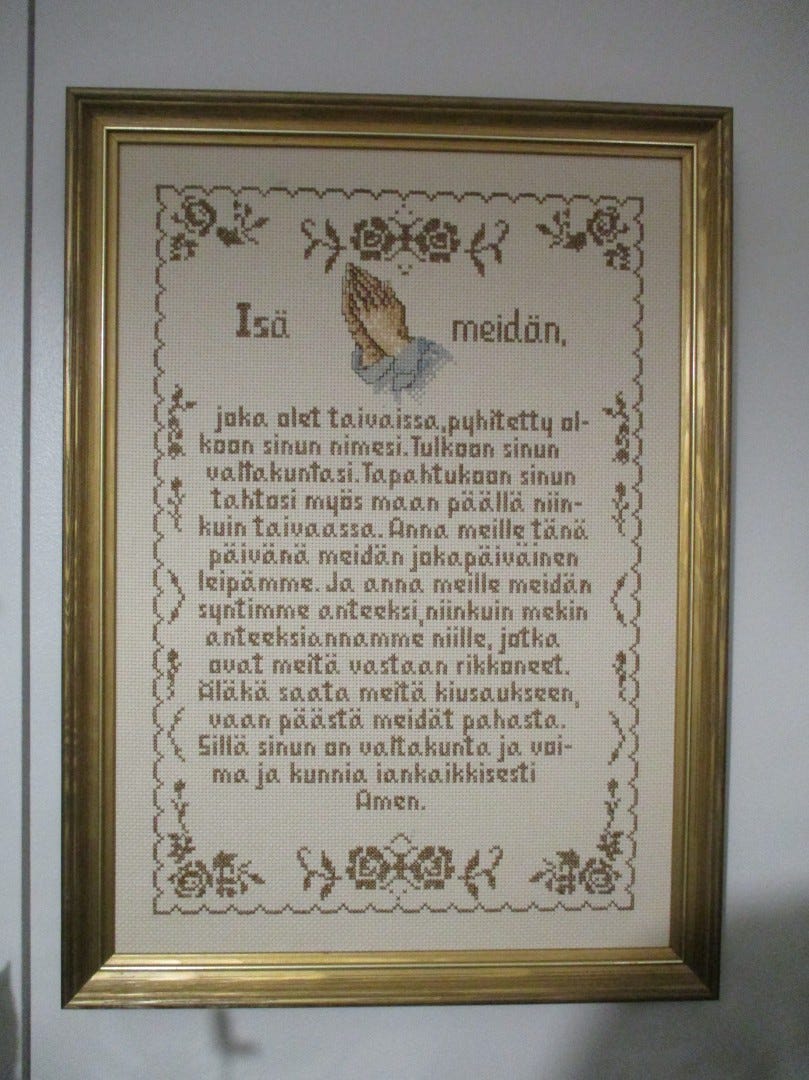 Isä meidän,
joka olet taivaissa, pyhitetty ol-
koon sinun nimesi. Tulkoon sinun
valtakuntasi. Tapahtukoon sinun
tahtosi myös maan päällä niin-
kuin taivaassa. Anna meille tänä
päivänä meidän jokapäiväinen
leipämme. Ja anna meille meidän
syntimme anteeksi, niinkuin mekin
anteeksiannamme niille, jotka
ovat meitä vastaan rikkoneet.
Äläkä saata meitä kiusaukseen,
vaan päästä meidät pahasta.
Sillä sinun on valtakunta ja voi-
ma ja kunnia iankaikkisesti
Amen.